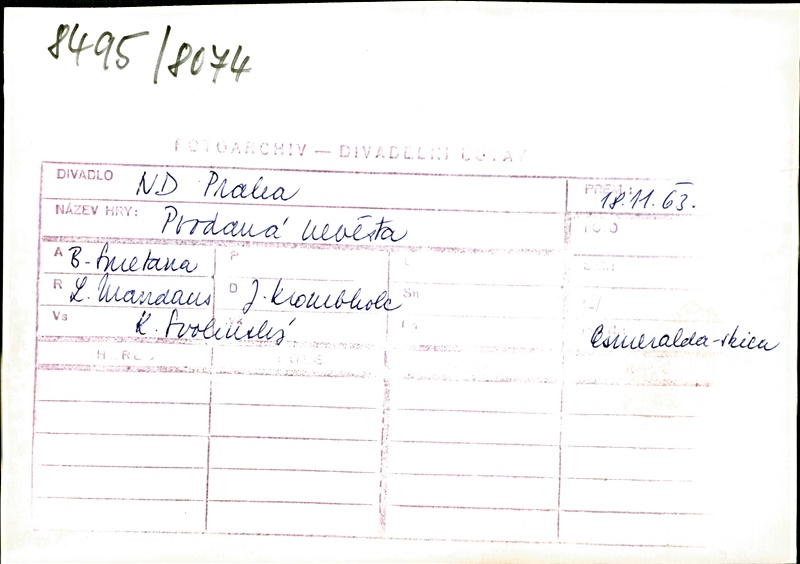 8495/8074
FOTOARCHIV — DIVADELNÍ ÚSTAV
DIVADLO ND Praha PREM.: 18.11.63.
NÁZEV HRY: Prodaná nevěsta FOTO
A B. Smetana P
R L. Mandaus D J. Krombholc Sn
Vs K. Svolinský Esmeralda-skica
HEREC